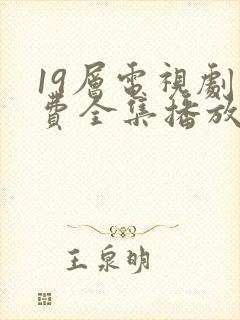 19層電視劇
費全集播放
王泉明